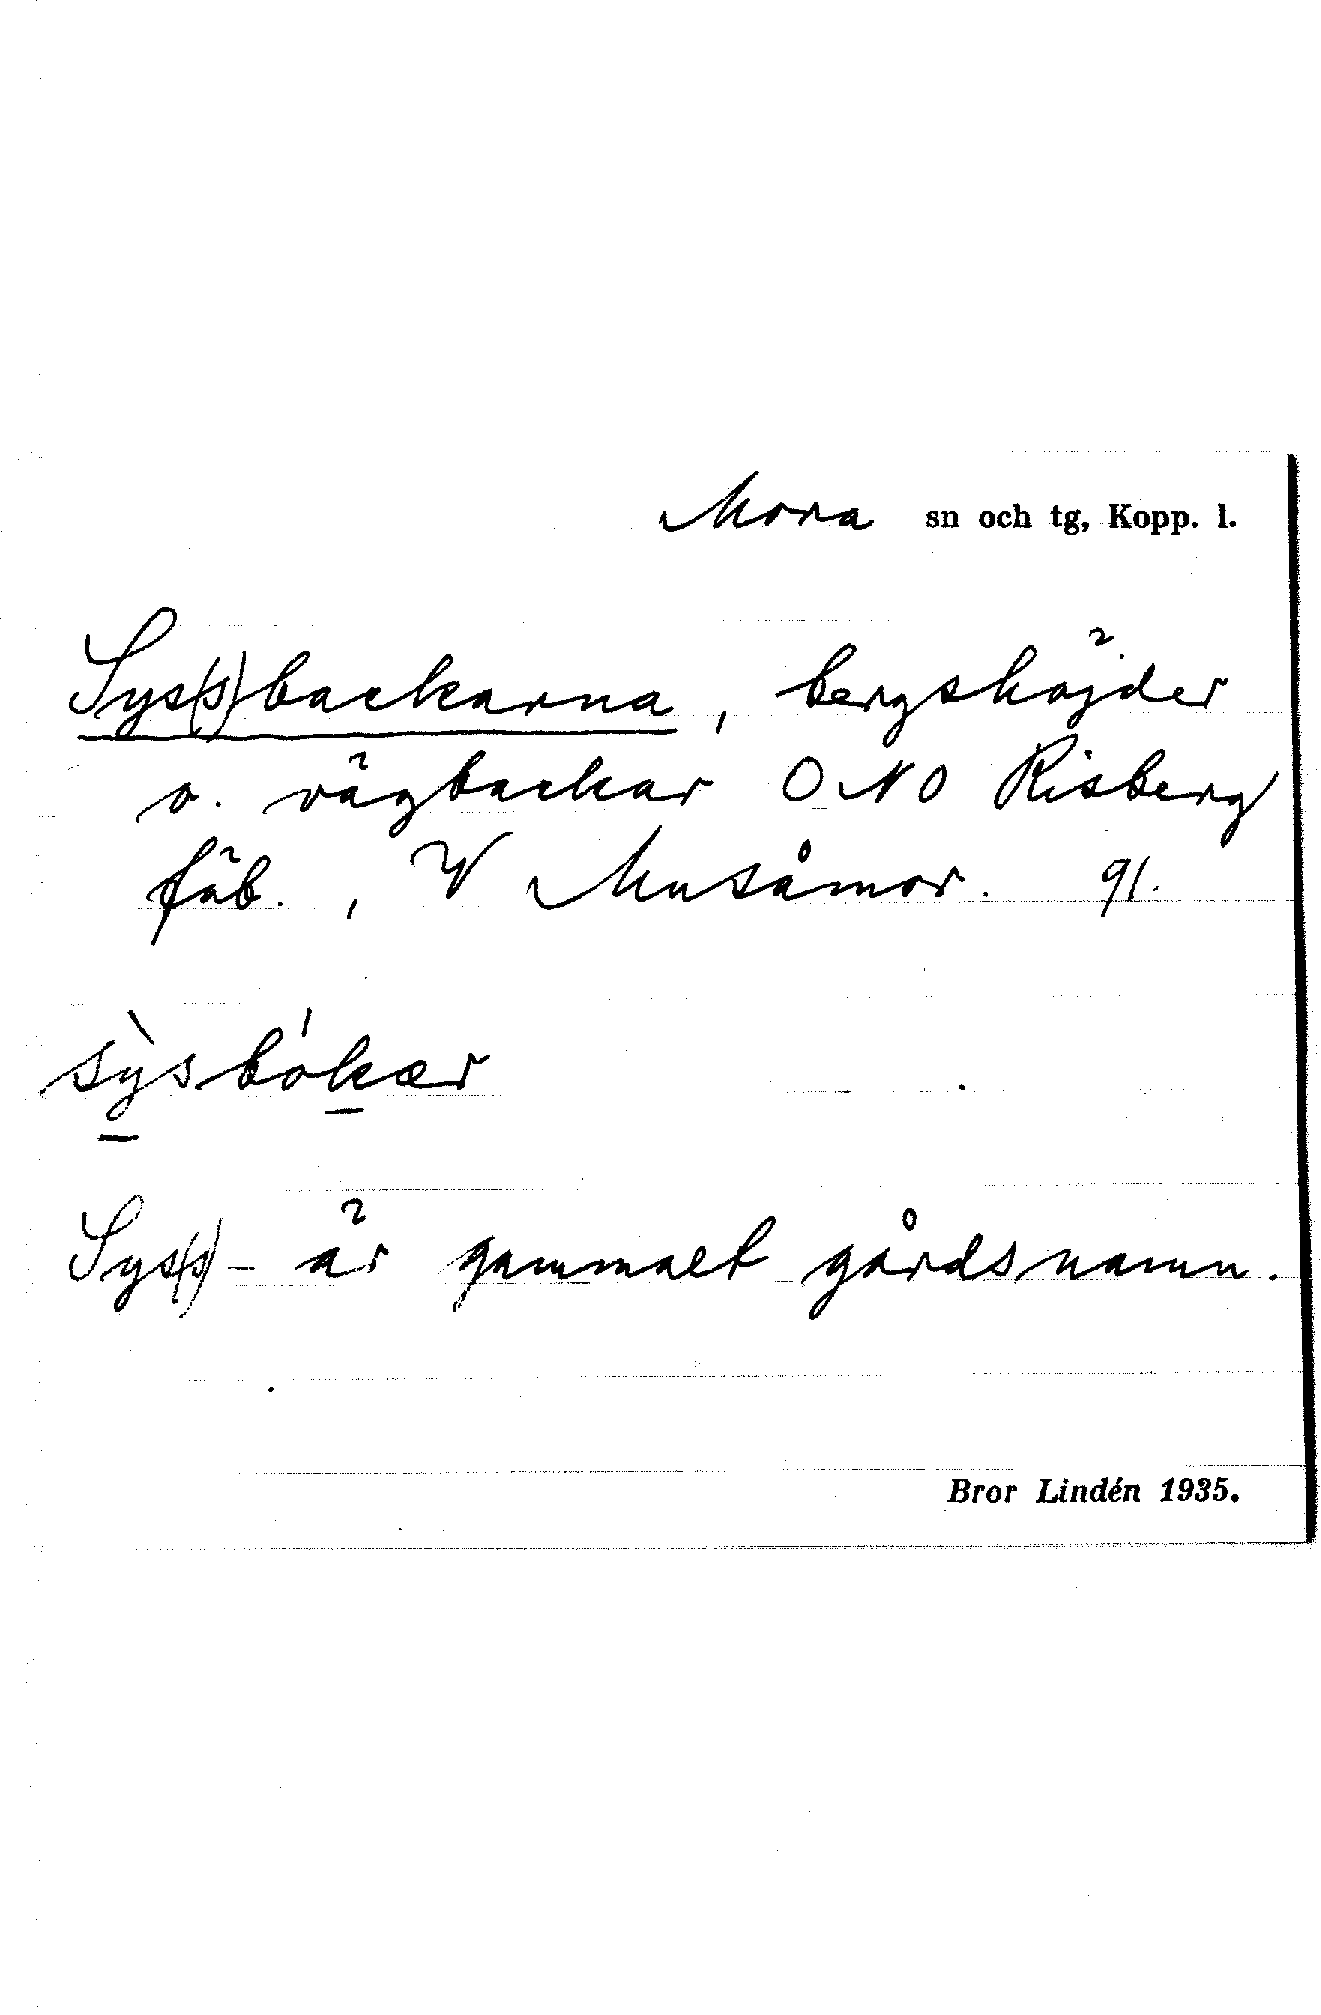 Mora sn och tg, Kopp. l.
Sys(s)backarna, bergshöjder
o. vägbackar ONO Risberg
fäb., V Musåmor. 91.
sỳsbókær
Sys(s)- är gammalt gårdsnamn.
Bror Lindén 1935.